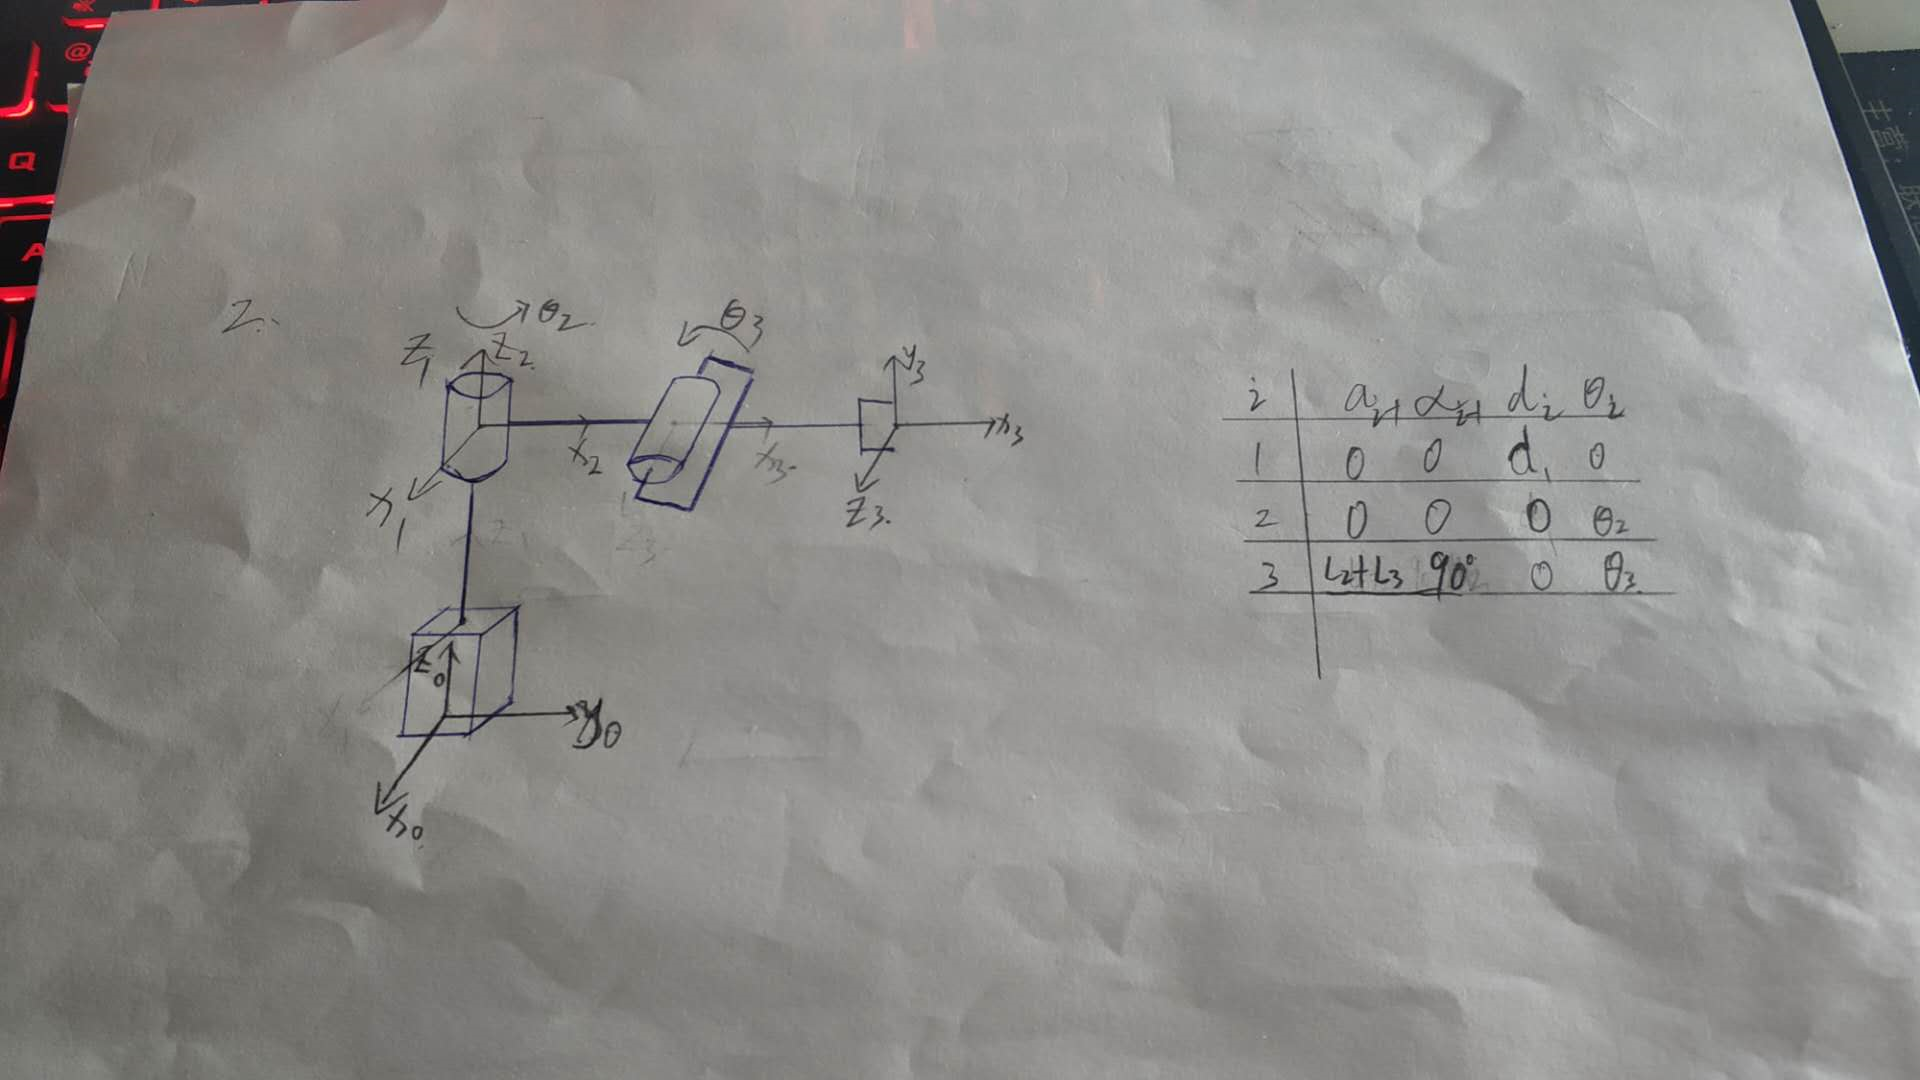 2.
θ2
θ3
Z1
Z2
y3
x2
x3
x3
x1
Z3
Z1
Z3
Z0
y0
x0
i ai-1 αi-1 di θi
1 0 0 d1 0
2 0 0 0 θ2
3 L2+L3 90° 0 θ3
Q
A
@